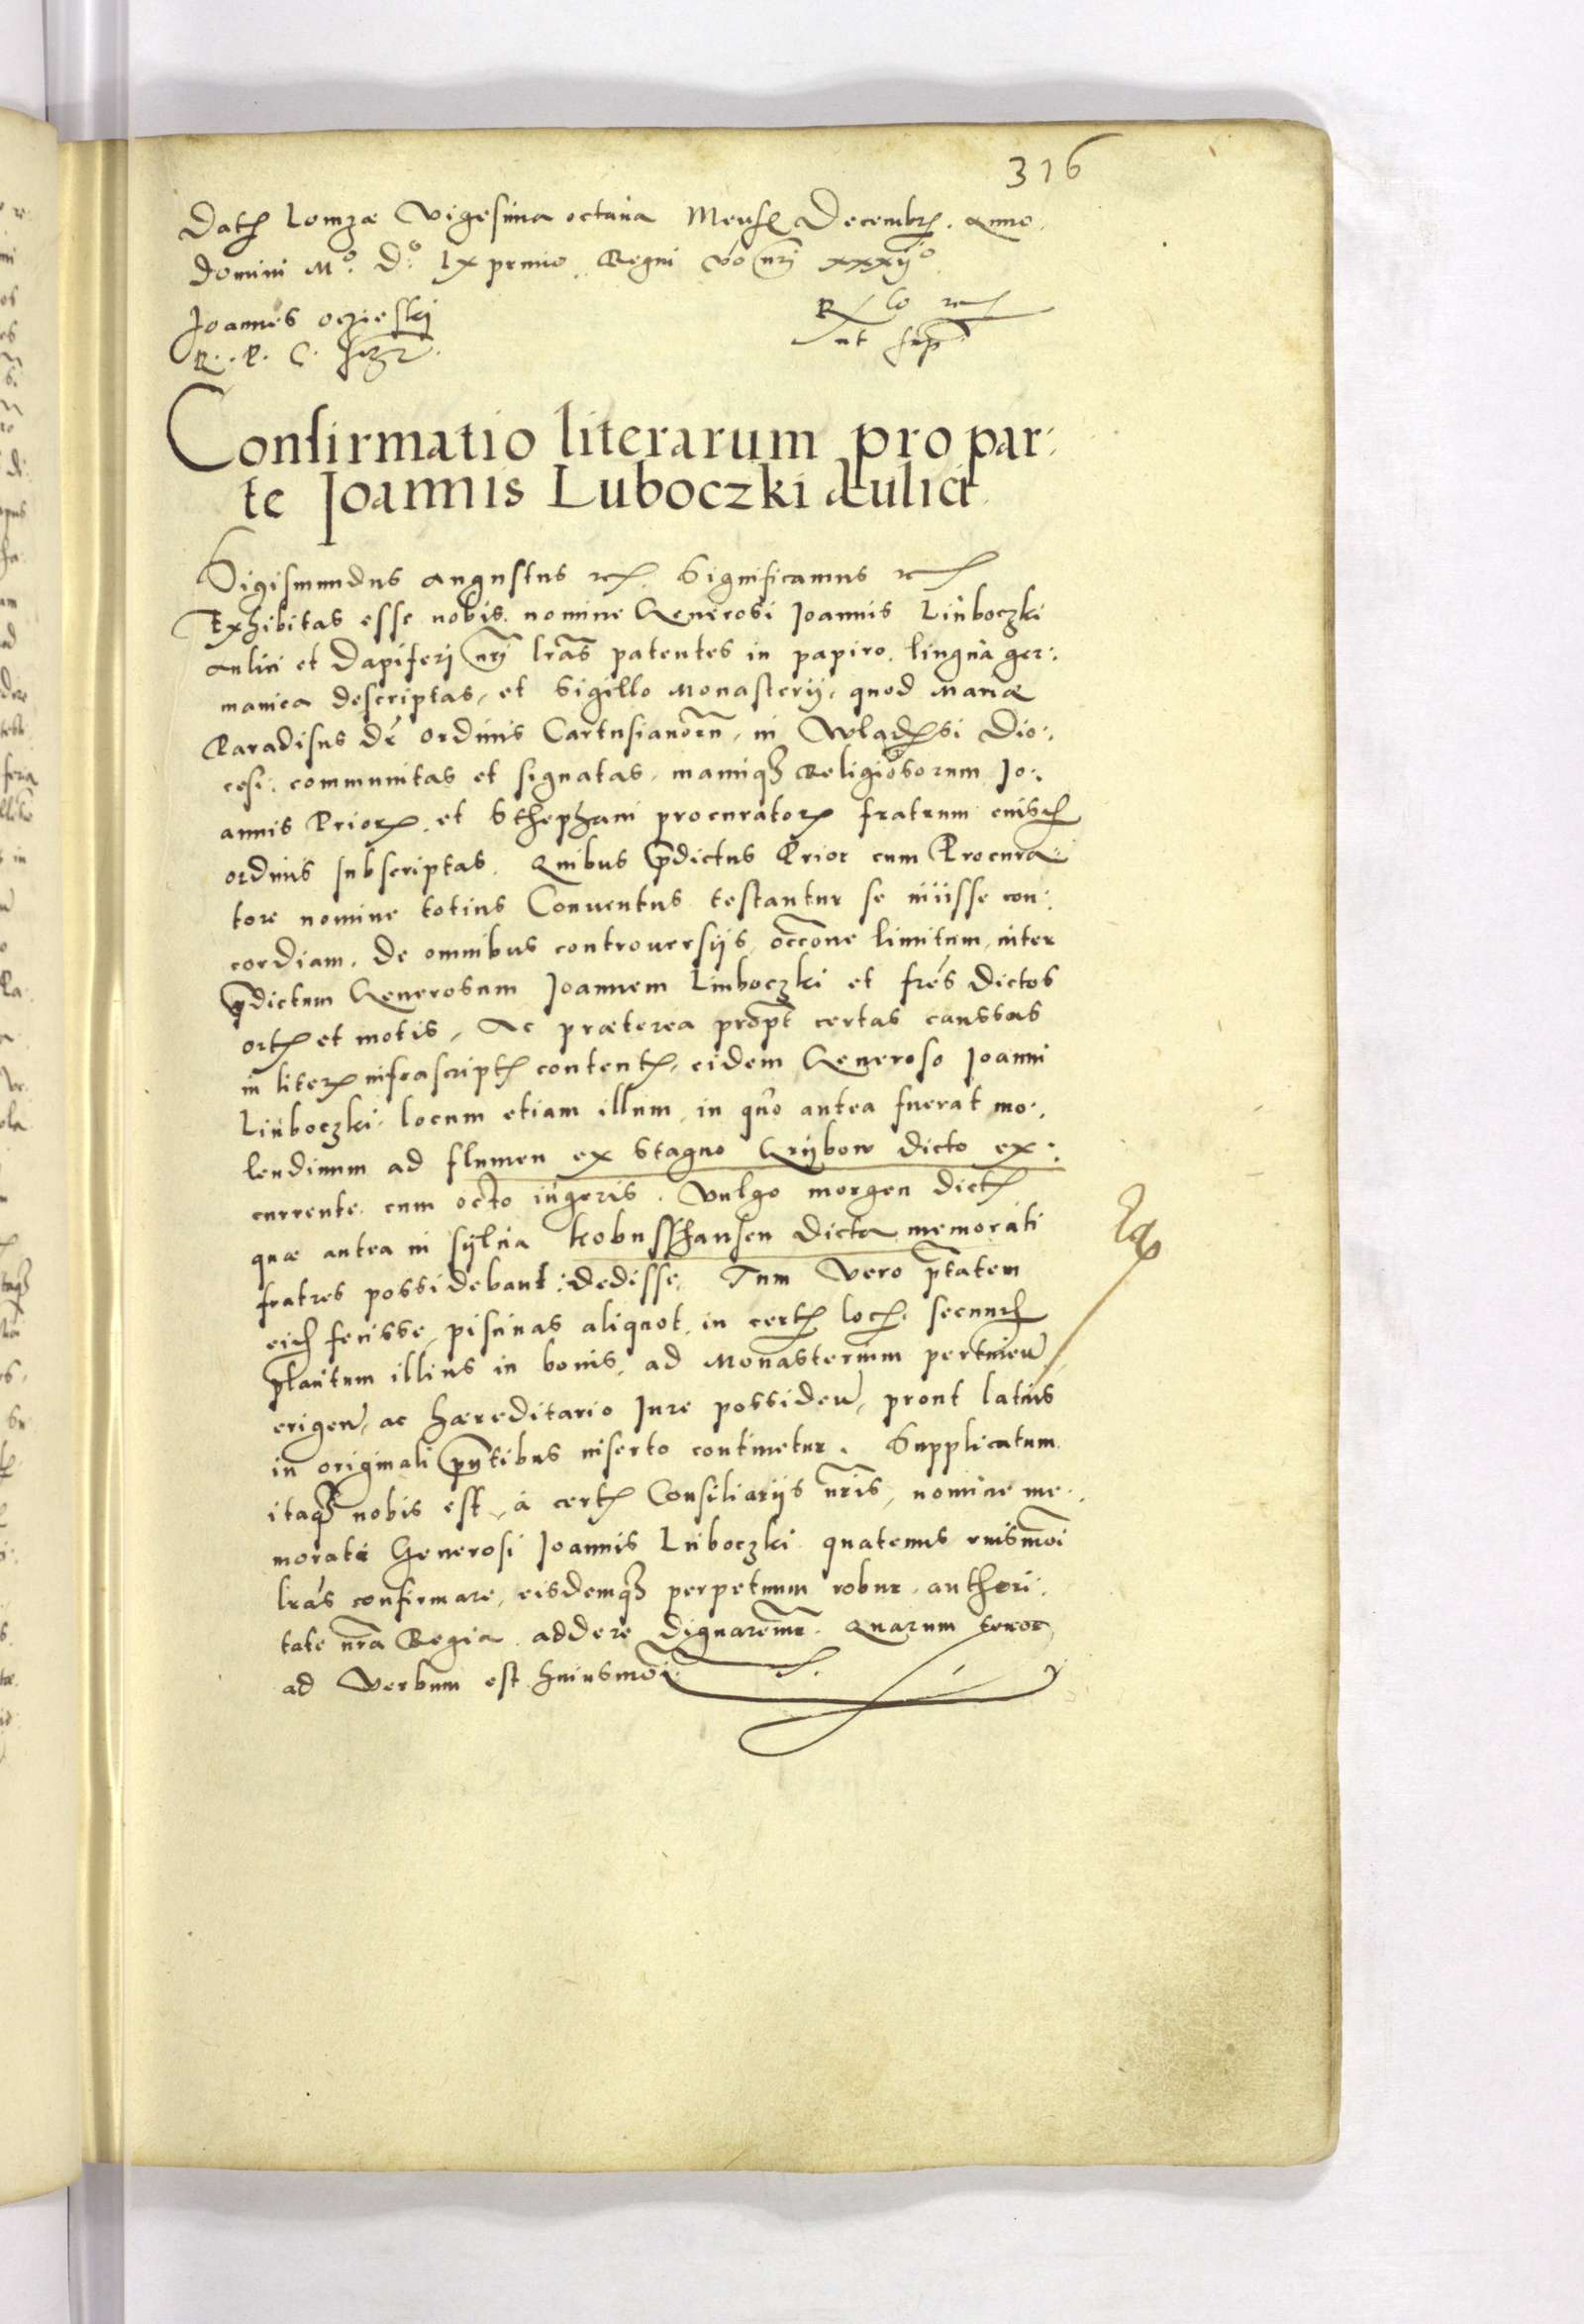 316
Dat Lomzæ Vigesima octaua Mens Decembr. Anno
Domini Mº. Dº. LX primo. Regni vo nri xxxijº.
Joannes oczieski
R. P. C. sszt.
R lo
ut sup
Confirmatio literarum pro par:
te Joannis Luboczki aulici
Sigismundus augustus etc. Significamus etc.
Exhibitas esse nobis. nomine Generosi Joannis Luboczki
aulici et Dapiferi nri lras patentes in papiro. lingua ger:
manica descriptas, et sigillo Monasterij, quod Mariæ
Paradisus de ordinis Cartusianorum, in Wladsi Dio:
cesi: communitas et signatas. manuqz Religiosorum Jo:
annis Prioris. et Sthephani procuratoris fratrum eiusd
ordinis subscriptas. Quibus pdictus Prior cum Procura:
tore nomine totius Conuentus testantur se inijsse con:
cordiam. de omnibus controuersijs, occone limitum, inter
pdictum Generosum Joannem Luboczki et fres dictos
ort et motis, Ac præterea propt certas caussas
in liter infrascript content, eidem Generoso Joanni
Luboczki. locum etiam illum, in quo antea fuerat mo:
lendinum ad flumen ex stagno Grijbow dicto ex:
currente. cum octo iugeris. Vulgo morgen dict
quæ antea in sylua Kobusshausen dicta memorati
fratres possidebant: dedisse, Tum vero ptatem
eid fecisse, piscinas aliquot, in cert loc, secund
placitum illius in bonis, ad Monasterium pertinen
erigen, ac hæreditario Jure possiden, prout latius
in originali pntibus inserto continetur. Supplicatum
itaqz nobis est, à cert Consiliarijs nris, nomine me:
morati Generosi Joannis Luboczki quatenus eiusmoi
lras confirmare, eisdemqz perpetuum robur authori:
tate nra Regia addere dignaremur. Quarum tenor
ad verbum est huiusmoi.